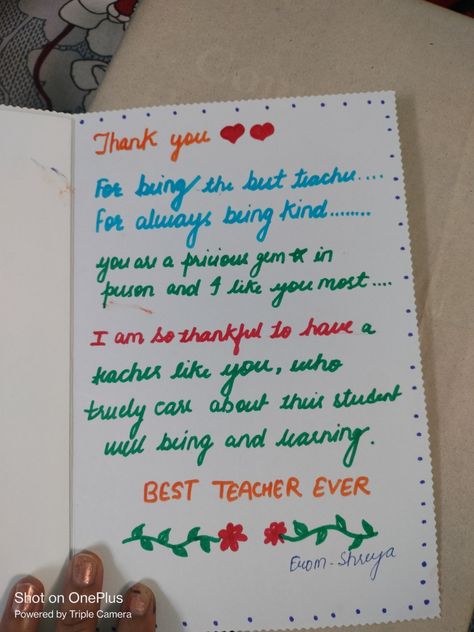 Thank you
For being the best teacher....
For always being kind........
you are a pricious gem in
person and I like you most....
I am so thankful to have a
teacher like you, who
truely care about their student
well being and learning.
BEST TEACHER EVER
From - Shreya
Shot on OnePlus
Powered by Triple Camera